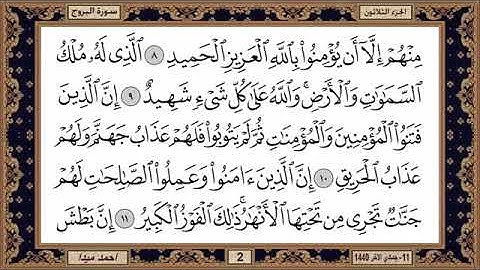 الجزء الثلاثون
سورة البروج
مِنْهُمْ إِلَّا أَن يُؤْمِنُوا۟ بِٱللَّهِ ٱلْعَزِيزِ ٱلْحَمِيدِ ٨ ٱلَّذِى لَهُۥ مُلْكُ
ٱلسَّمَٰوَٰتِ وَٱلْأَرْضِ ۚ وَٱللَّهُ عَلَىٰ كُلِّ شَىْءٍ شَهِيدٌ ٩ إِنَّ ٱلَّذِينَ
فَتَنُوا۟ ٱلْمُؤْمِنِينَ وَٱلْمُؤْمِنَٰتِ ثُمَّ لَمْ يَتُوبُوا۟ فَلَهُمْ عَذَابُ جَهَنَّمَ وَلَهُمْ
عَذَابُ ٱلْحَرِيقِ ١٠ إِنَّ ٱلَّذِينَ ءَامَنُوا۟ وَعَمِلُوا۟ ٱلصَّٰلِحَٰتِ لَهُمْ
جَنَّٰتٌ تَجْرِى مِن تَحْتِهَا ٱلْأَنْهَٰرُ ۚ ذَٰلِكَ ٱلْفَوْزُ ٱلْكَبِيرُ ١١ إِنَّ بَطْشَ
11- جمادي الآخر 1440
2
احمد